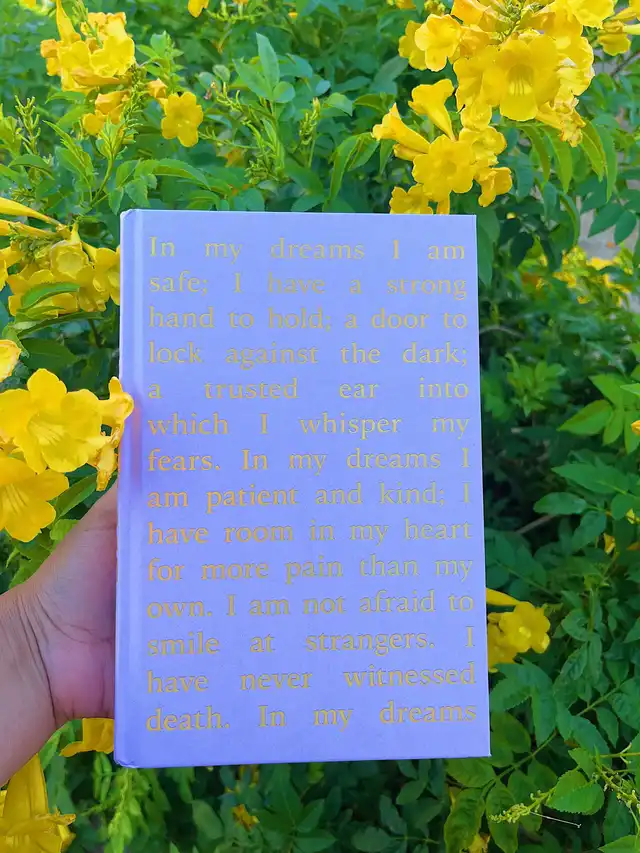 In my dreams I am
safe; I have a strong
hand to hold; a door to
lock against the dark;
a trusted ear into
which I whisper my
fears. In my dreams I
am patient and kind; I
have room in my heart
for more pain than my
own. I am not afraid to
smile at strangers. I
have never witnessed
death. In my dreams